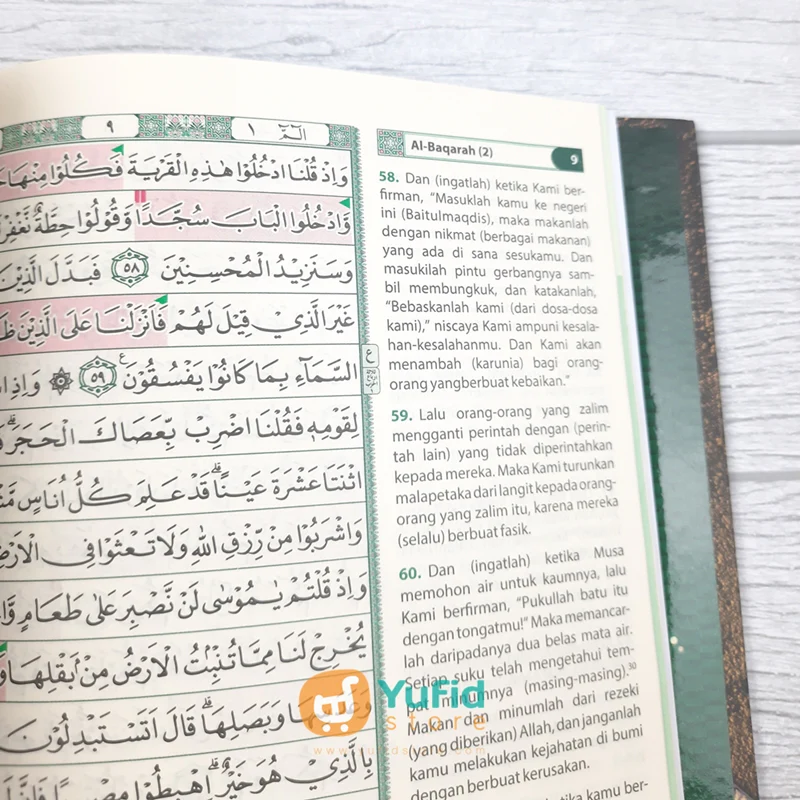 ٩
الۤمّۤ ١
وَاِذْ قُلْنَا ادْخُلُوْا هٰذِهِ الْقَرْيَةَ فَكُلُوْا مِنْهَا
وَّادْخُلُوا الْبَابَ سُجَّدًا وَّقُوْلُوْا حِطَّةٌ نَّغْفِرْ
وَسَنَزِيْدُ الْمُحْسِنِيْنَ ٥٨ فَبَدَّلَ الَّذِيْنَ
غَيْرَ الَّذِيْ قِيْلَ لَهُمْ فَاَنْزَلْنَا عَلَى الَّذِيْنَ
السَّمَاۤءِ بِمَا كَانُوْا يَفْسُقُوْنَ ࣖ ٥٩ ۞ وَاِذِ
لِقَوْمِهٖ فَقُلْنَا اضْرِبْ بِّعَصَاكَ الْحَجَرَۗ
اثْنَتَا عَشْرَةَ عَيْنًاۗ قَدْ عَلِمَ كُلُّ اُنَاسٍ
وَاشْرَبُوْا مِنْ رِّزْقِ اللّٰهِ وَلَا تَعْثَوْا فِى الْاَرْضِ
وَاِذْ قُلْتُمْ يٰمُوْسٰى لَنْ نَّصْبِرَ عَلٰى طَعَامٍ
يُخْرِجْ لَنَا مِمَّا تُنْۢبِتُ الْاَرْضُ مِنْۢ بَقْلِهَا
وَعَدَسِهَا وَبَصَلِهَاۗ قَالَ اَتَسْتَبْدِلُوْنَ
بِالَّذِيْ هُوَ خَيْرٌۗ اِهْبِطُوْا مِصْرًا فَاِنَّ
ع
Al-Baqarah (2)
9
58. Dan (ingatlah) ketika Kami ber-
firman, “Masuklah kamu ke negeri
ini (Baitulmaqdis), maka makanlah
dengan nikmat (berbagai makanan)
yang ada di sana sesukamu. Dan
masukilah pintu gerbangnya sam-
bil membungkuk, dan katakanlah,
“Bebaskanlah kami (dari dosa-dosa
kami),” niscaya Kami ampuni kesala-
han-kesalahanmu. Dan Kami akan
menambah (karunia) bagi orang-
orang yangberbuat kebaikan.”
59. Lalu orang-orang yang zalim
mengganti perintah dengan (perin-
tah lain) yang tidak diperintahkan
kepada mereka. Maka Kami turunkan
malapetaka dari langit kepada orang-
orang yang zalim itu, karena mereka
(selalu) berbuat fasik.
60. Dan (ingatlah) ketika Musa
memohon air untuk kaumnya, lalu
Kami berfirman, “Pukullah batu itu
dengan tongatmu!” Maka memancar-
lah daripadanya dua belas mata air.
Setiap suku telah mengetahui tem-
pat minumnya (masing-masing).30
Makan dan minumlah dari rezeki
(yang diberikan) Allah, dan janganlah
kamu melakukan kejahatan di bumi
dengan berbuat kerusakan.
ketika kamu ber-
YuFid
store